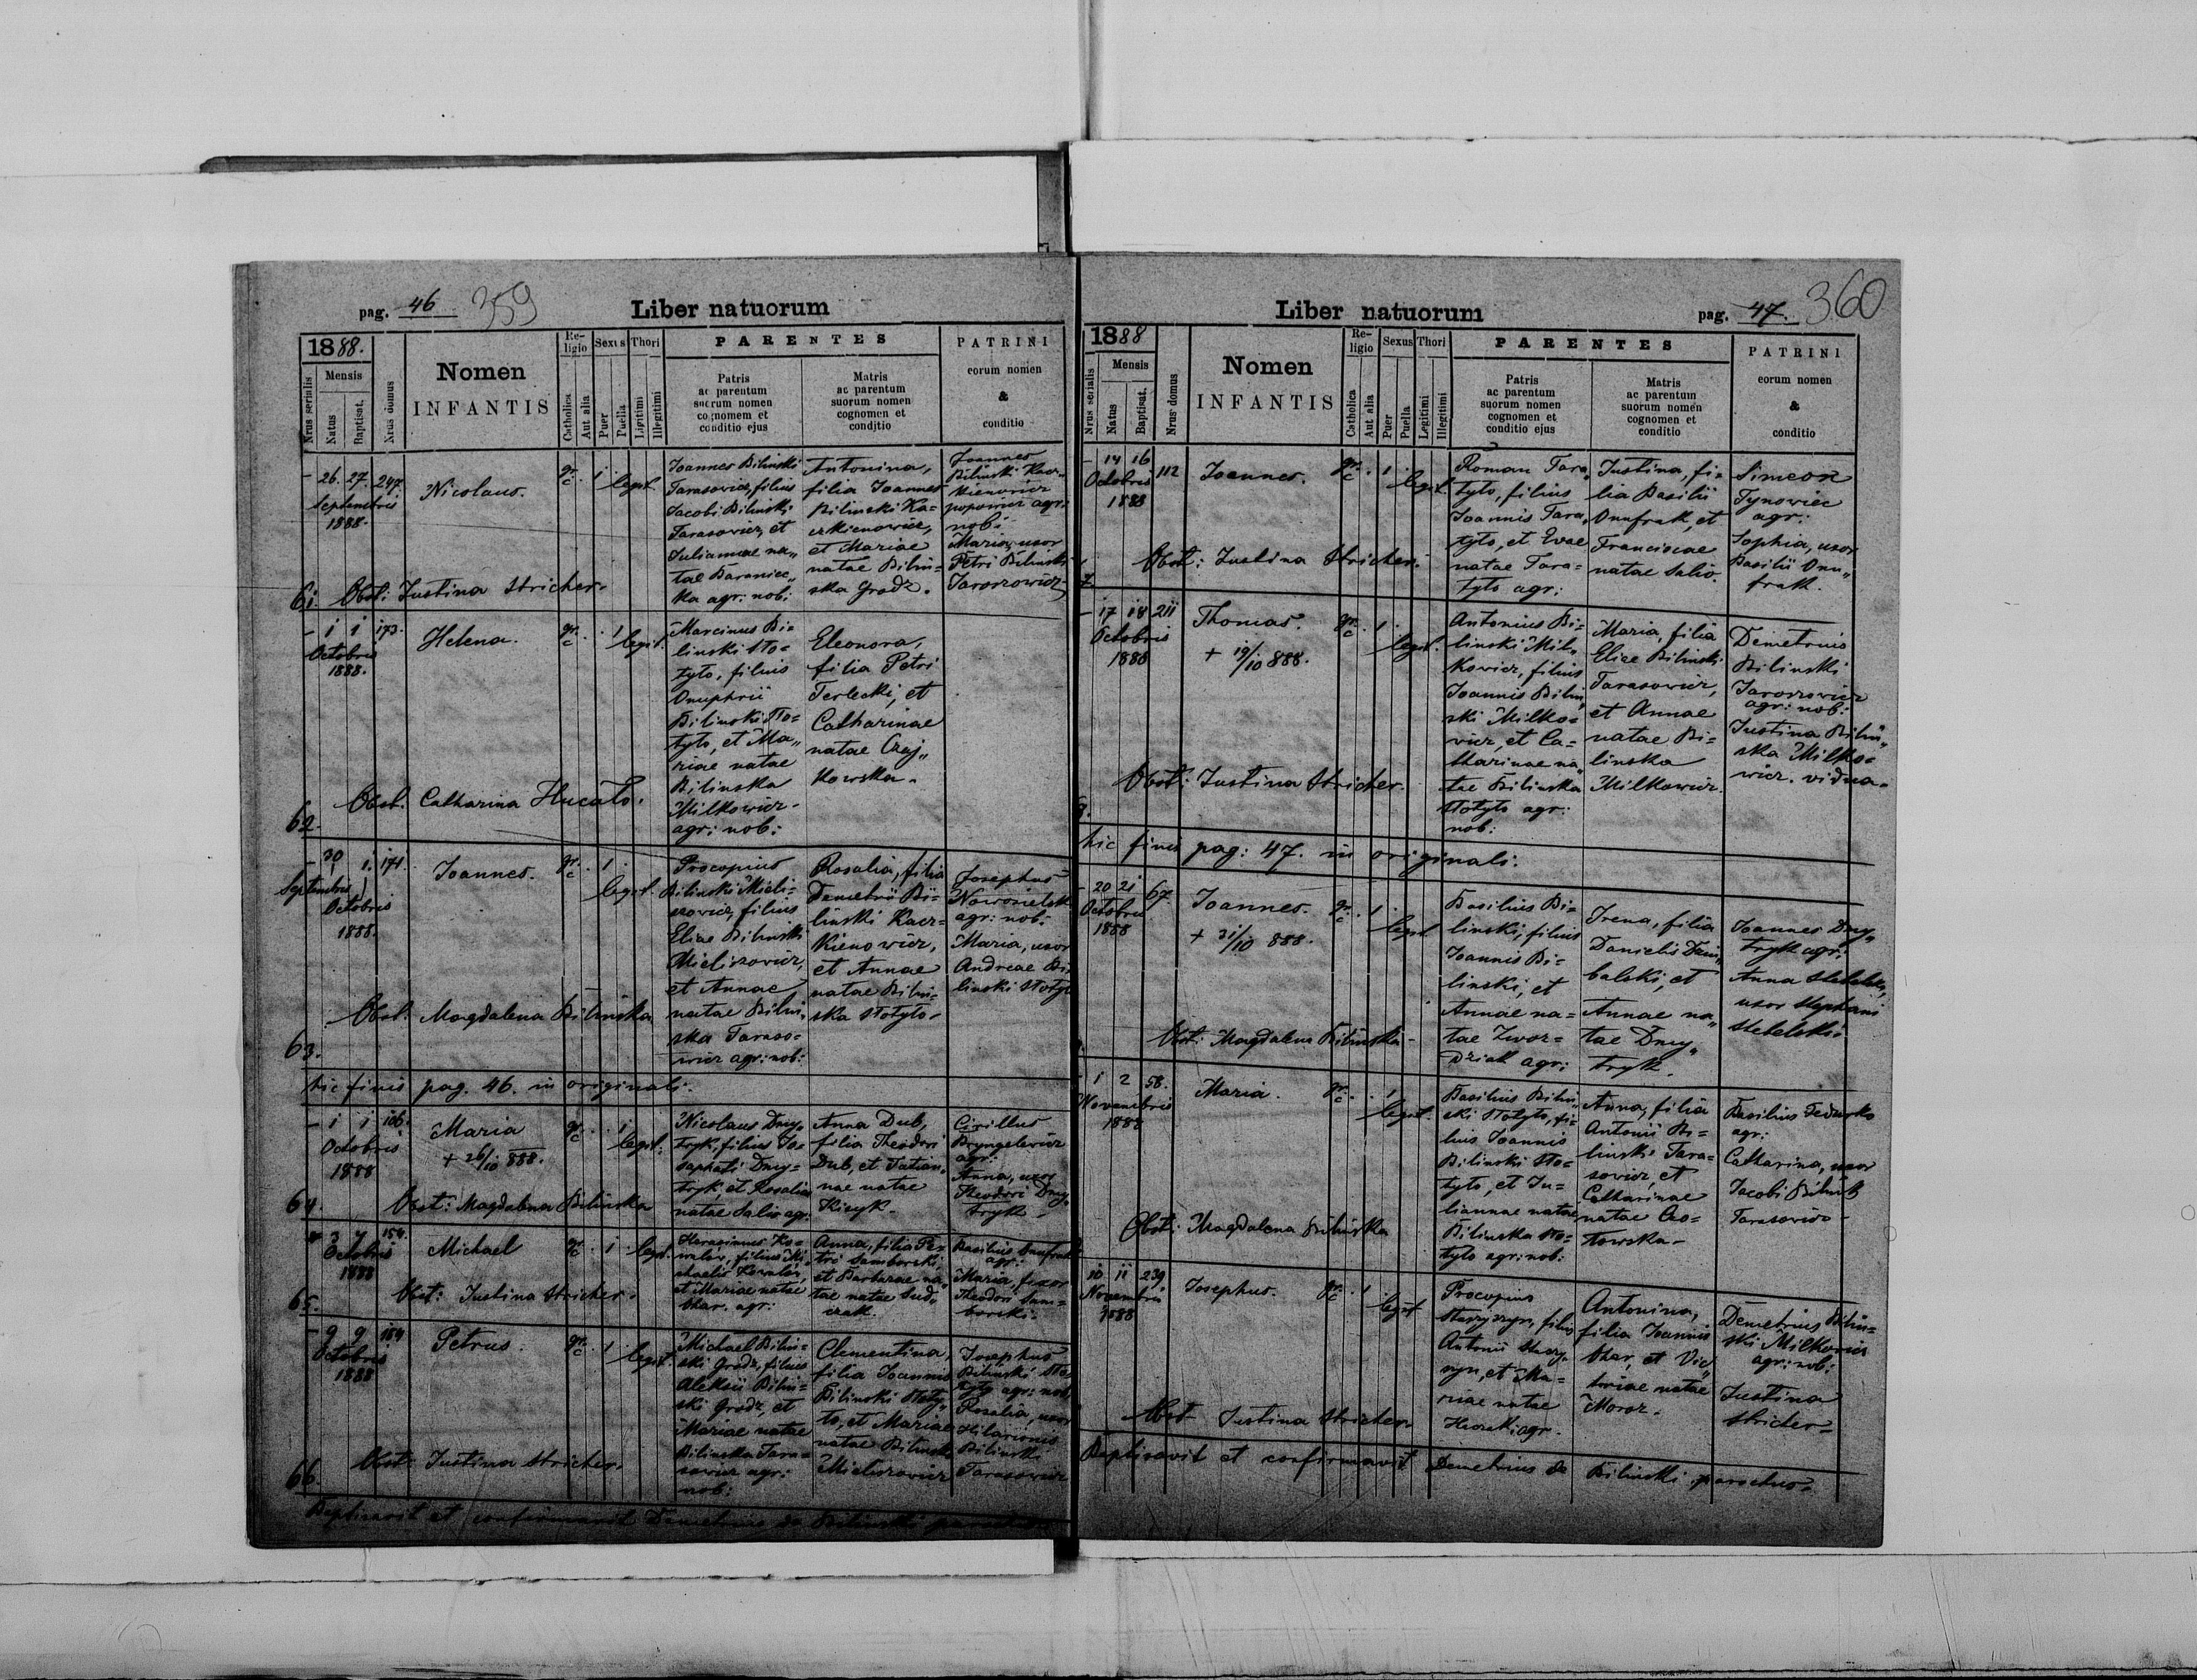 pag. 46 359
Liber natuorum
1888.
Nrus serialis
Mensis
Natus
Baptisat.
Nrus domus
Nomen
INFANTIS
Religio
Catholica
Aut alia
Sexus
Puer
Puella
Thori
Ligitimi
Illegitimi
PARENTES
Patris
ac parentum
suorum nomen
cognomem et
conditio ejus
Matris
ac parentum
suorum nomen
cognomen et
conditio
PATRINI
eorum nomen
&
conditio
61.
26. 27. 247
Septembris
1888.
Nicolaus.
gr. c. 1 legit.
Obst: Justina Stricher.
Joannes Bilinski
Tarasowicz, filius
Jacobi Bilinski
Tarasowicz, et
Juliannae na„
tae Baraniec„
ka agr: nob:
Antonina,
filia Joannes
Bilinski Ka=
czkienowicz,
et Mariae
natae Bilin=
ska Grodz.
Joannes
Bilinski Kacz-
kienowicz
popowicz agr:
nob:
Maria, uxor
Petri Bilinski
Jaroszowicz
62.
1 1 173.
Octobris
1888.
Helena.
gr. c. 1 legit.
Obst. Catharina Hucało.
Marcinus Bi=
linski Sto=
tyło, filius
Onuphrii
Bilinski Sto=
tyło, et Ma„
riae natae
Bilinska
Milkowicz-
agr: nob:
Eleonora,
filia Petri
Terlecki, et
Catharinae
natae Czaj„
kowska.
63.
30 1. 171.
Septembris
Octobris
1888.
Joannes.
gr. c. 1 legit.
Obst. Magdalena Bilinska
Procopius
Bilinski Mieli=
szowicz, filius
Eliae Bilinski
Mieliszowicz,
et Annae
natae Bilin„
ska Taraso=
wicz agr: nob:
Rosalia, filia
Demetrii Bi=
linski Kacz=
kienowicz,
et Annae
natae Bilin=
ska Stotyło.
Josephus
Nowosielsk
agr: nob:
Maria, uxor
Andreae Bi=
linski Stotył
hic finis pag. 46. in originali.
64.
1 1 106.
Octobris
1888
Maria
+ 26/10 888.
gr. c. 1 legit.
Obst: Magdalena Bilinska
Nicolaus Dmy„
tryk, filius Jo=
saphati Dmy=
tryk, et Rosaliae
natae Salio agr:
Anna Dub,
filia Theodori
Dub, et Tatian„
nae natae
Kicyk.
Cirillus
Bryngelewicz
agr:
Anna, uxor
Theodori Dmy„
tryk.
65.
3 7 154.
Octobris
1888
Michael
gr. c. 1 legit.
Obst: Justina Stricher.
Harasimus Ko=
walów, filius Mi„
chaelis Kowalów,
et Mariae natae
Char. agr:
Anna, filia Pe=
tri Samborski,
et Barbarae na„
tae natae Sud„
czak.
Basilius Onufrak
agr:
Maria, uxor
Theodori Sam=
borski.
66.
9 9 184
Octobris
1888
Petrus.
gr. c. 1 legit.
Obst: Justina Stricher.
Michael Bilin=
ski Grodz, filius
Aleksii Bilin=
ski Grodz, et
Mariae natae
Bilinska Tara=
sowicz agr:
nob:
Clementina,
filia Joannis
Bilinski Stoty„
ło, et Mariae
natae Bilinska
Mieliszowicz
Josephus
Bilinski Sto=
tyło agr: nob.
Rosalia, uxor
Hilarionis
Bilinski
Tarasowicz
Baptisavit et confirmavit Demetrius de Bilinski parochus
Liber natuorum
pag. 47. 360
1888
Nrus serialis
Mensis
Natus
Baptisat.
Nrus domus
Nomen
INFANTIS
Religio
Catholica
Aut alia
Sexus
Puer
Puella
Thori
Legitimi
Illegitimi
PARENTES
Patris
ac parentum
suorum nomen
cognomen et
conditio ejus
Matris
ac parentum
suorum nomen
cognomen et
conditio
PATRINI
eorum nomen
&
conditio
14 16 112
Octobris
1888
Joannes.
gr. c. 1 legit.
Obst: Justina Stricher.
Roman Tara„
tyło, filius
Joannis Tara„
tyło, et Evae
natae Tara=
tyło agr:
Justina, fi=
lia Basilii
Onufrak, et
Franciscae
natae Salio.
Simeon
Tynowiec
agr:
Sophia, uxor
Basilii Onu„
frak.
17 18 211
Octobris
1888
Thomas.
+ 19/10 888.
gr. c. 1 legit.
Obst: Justina Stricher.
Antonius Bi=
linski Mil„
kowicz, filius
Joannis Bilin„
ski Milko=
wicz, et Ca=
tharinae na„
tae Bilinska
Stotyło agr:
nob:
Maria, filia
Eliae Bilinski
Tarasowicz,
et Annae
natae Bi=
linska
Milkowicz.
Demetrius
Bilinski
Jaroszowicz
agr: nob:
Justina Bilin„
ska Milko=
wicz. vidua.
hic finis pag: 47. in originali.
20 21 67
Octobris
1888
Joannes.
+ 31/10 888.
gr. c. 1 legit
Obst: Magdalena Bilinska
Basilius Bi=
linski, filius
Joannis Bi=
linski, et
Annae na=
tae Zwor=
dziak agr:
Irena, filia
Danielis Dem„
balski, et
Annae na„
tae Dmy„
tryk.
Joannes Dmy„
tryk agr:
Anna Stebelska,
uxor Stephani
Stebelski
1 2 58.
Novembris
1888
Maria.
gr. c. 1 legit.
Obst: Magdalena Bilinska
Basilius Bilin„
ski Stotyło, fi=
lius Joannis
Bilinski Sto=
tyło, et Ju=
liannae natae
Bilinska Sto=
tyło agr: nob:
Anna, filia
Antonii Bi=
linski Tara=
sowicz, et
Catharinae
natae Czo=
towska.
Basilius Fedurko
agr:
Catharina, uxor
Jacobi Bilinsk
Tarasowicz
10 11 239
Novembris
1888
Josephus.
gr. c. 1 legit
Obst Justina Stricher
Procopius
Starzyszyn, filius
Antonii
et Ma=
riae natae
agr.
Antonina,
filia Joannis
Char, et Vic„
toriae natae
Moroz.
Demetrius Bilin=
ski Milkowicz
agr: nob:
Justina
Stricher
Baptisavit et confirmavit Demetrius de Bilinski parochus.